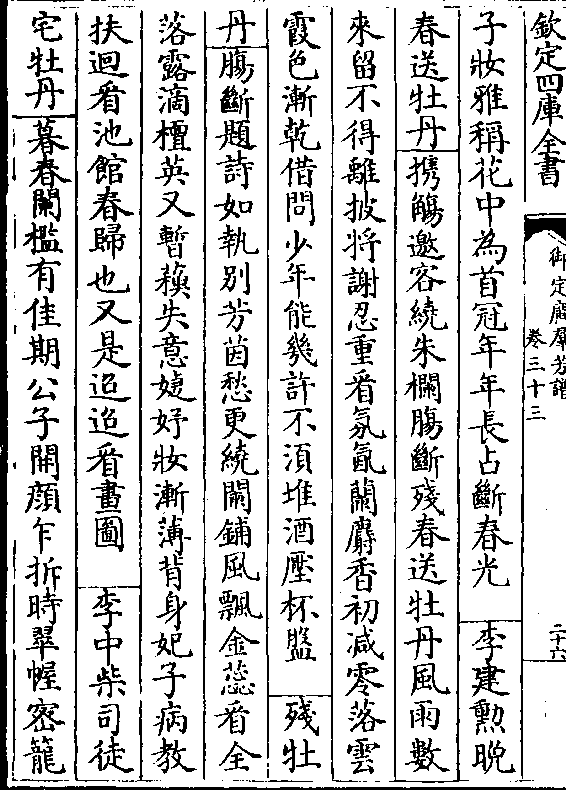 欽定四庫全書
御定廣羣芳譜
卷三十三
二十六
子妝雅稱花中為首冠年年長占斷春光　李建勲晩
春送牡丹　携觴邀客繞朱欄腸斷殘春送牡丹風雨數
來留不得離披將謝忍重看氛氲蘭麝香初减零落雲
霞色漸乾借問少年能幾許不湏堆酒壓杯盤　殘牡
丹　腸斷題詩如執别芳茵愁更繞闌鋪風飄金蕊看全
落露滴檀英又暫蘓失意婕妤妝漸薄背身妃子病教
扶迴看池館春歸也又是迢迢看畫圖　李中柴司徒
宅牡丹　暮春闌檻有佳期公子開顔乍拆時翠幄密籠